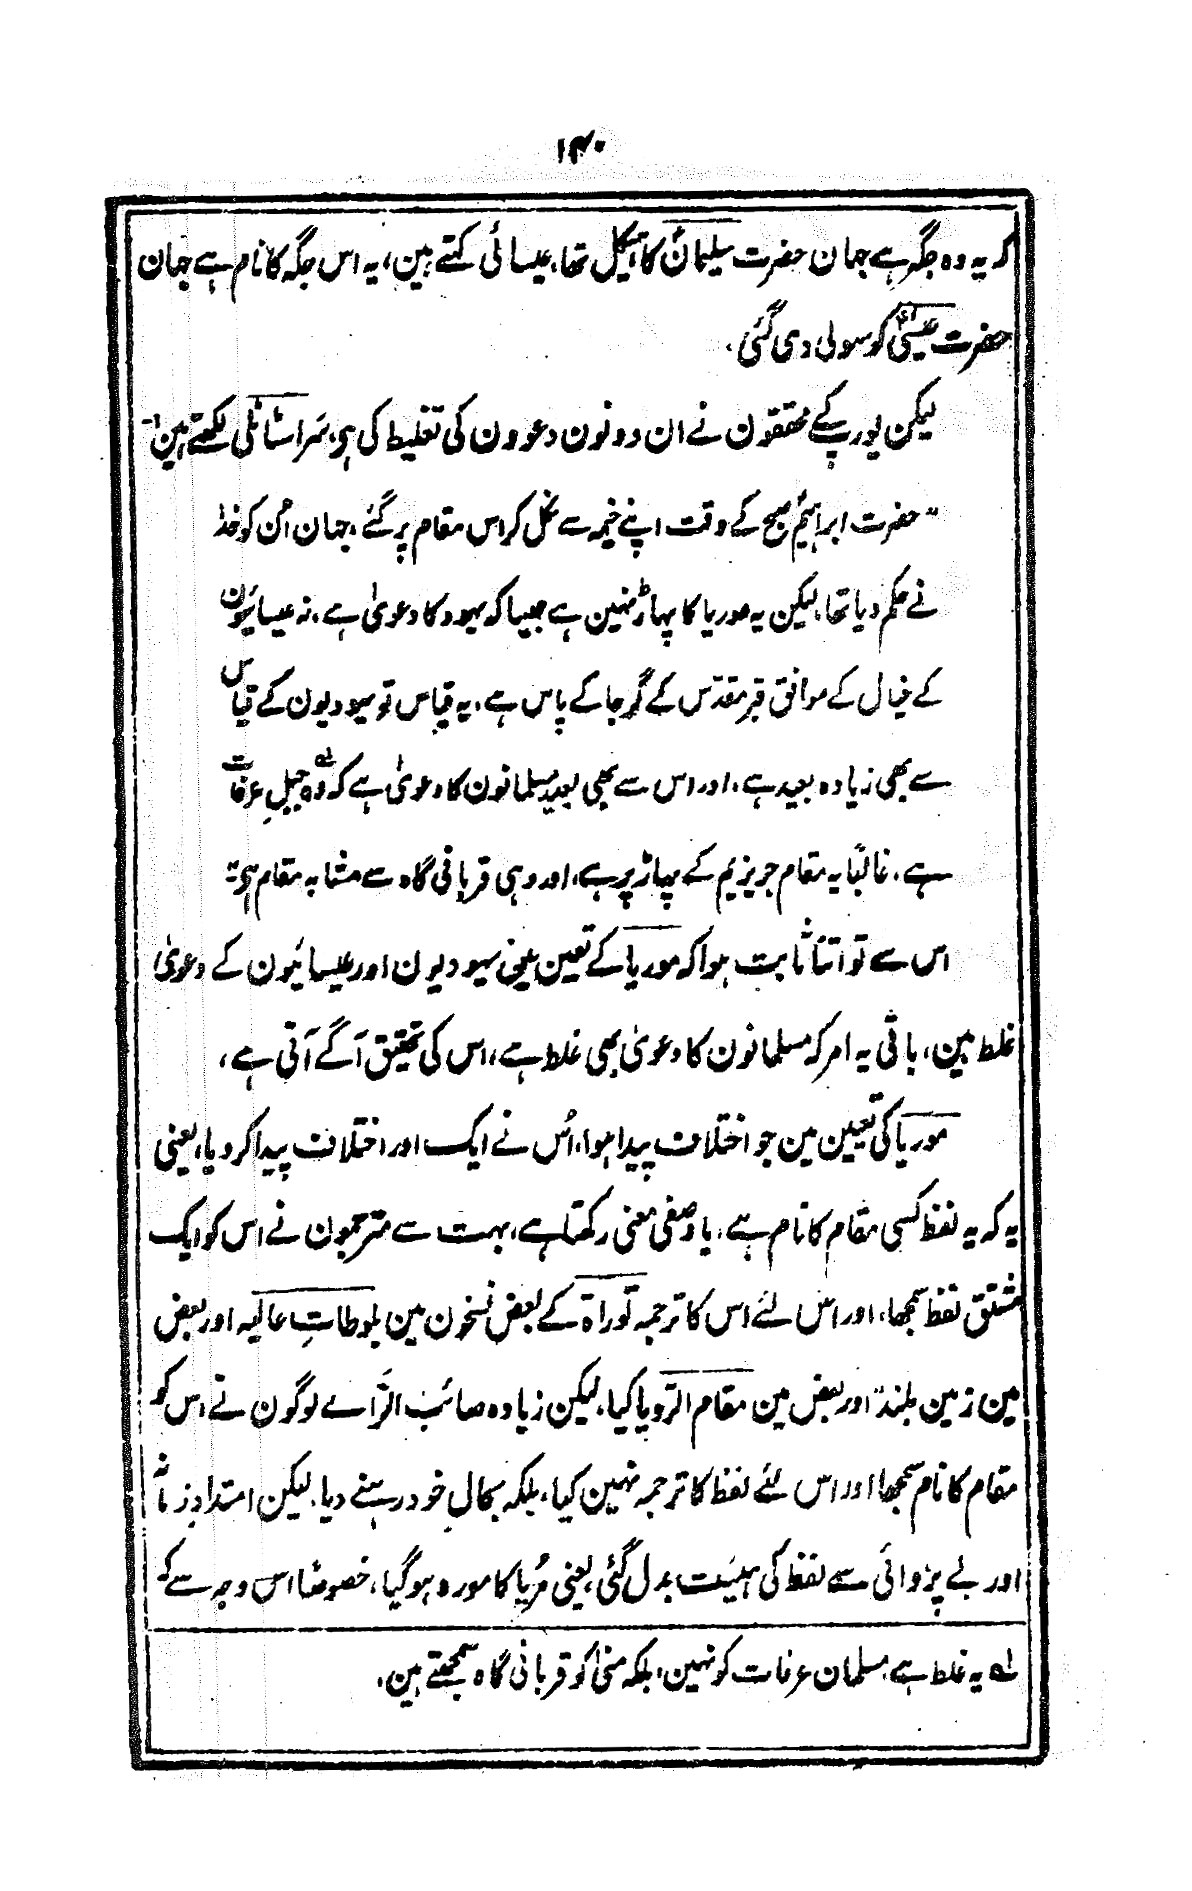 ۱۴۰
کہ یہ وہ جگہ ہے جہان حضرت سلیمانؑ کا ہیکل تھا، عیسائی کہتے ہین، یہ اس جگہ کا نام ہے جہان
حضرت عیسیٰؑ کو سولی دی گئی،
لیکن یورپ کے محققون نے ان دونون دعوون کی تغلیط کی ہی، سر اسٹانلی لکھتے ہین:-
"حضرت ابراہیمؑ صبح کے وقت اپنے خیمہ سے نکل کر اس مقام پر گئے، جہان اُن کو خدا
نے حکم دیا تھا، لیکن یہ موریا کا پہاڑ نہین ہے جیسا کہ یہود کا دعویٰ ہے، نہ عیسائیون
کے خیال کے موافق قبر مقدس کے گرجا کے پاس ہے، یہ قیاس تو یہودیون کے قیاس
سے بھی زیادہ بعید ہے، اور اس سے بھی بعید مسلمانون کا دعویٰ ہے کہ وہ لہ جبل عرفات
ہے، غالبًا یہ مقام جریزیم کے پہاڑ پر ہے، اور وہی قربانی گاہ سے مشابہ مقام ہی"
اس سے تو اتنا ثابت ہوا کہ موریا کے تعین مین یہودیون اور عیسائیون کے دعویٰ
غلط ہین، باقی یہ امر کہ مسلمانون کا دعویٰ بھی غلط ہے، اس کی تحقیق آگے آتی ہے،
موریا کی تعیین مین جو اختلاف پیدا ہوا، اُس نے ایک اور اختلاف پیدا کر دیا، یعنی
یہ کہ یہ لفظ کسی مقام کا نام ہے، یا وصفی معنی رکھتا ہے، بہت سے مترجمون نے اس کو ایک
مشتق لفظ سمجھا، اور اس لئے اس کا ترجمہ توراۃ کے بعض نسخون مین بلوطاتِ عالیہ اور بعض
مین زمین بلند اور بعض مین مقام الرویا کیا، لیکن زیادہ صائب الراے لوگون نے اس کو
مقام کا نام سمجھا اور اس لئے لفظ کا ترجمہ نہین کیا، بلکہ بحال خود رہنے دیا، لیکن امتداد زمانہ
اور بے پروائی سے لفظ کی ہیئت بدل گئی، یعنی مُریا کا مورہ ہو گیا، خصوصًا اس وجہ سے کہ
لہ یہ غلط ہے مسلمان عرفات کو نہین، بلکہ منیٰ کو قربانی گاہ سمجھتے ہین،